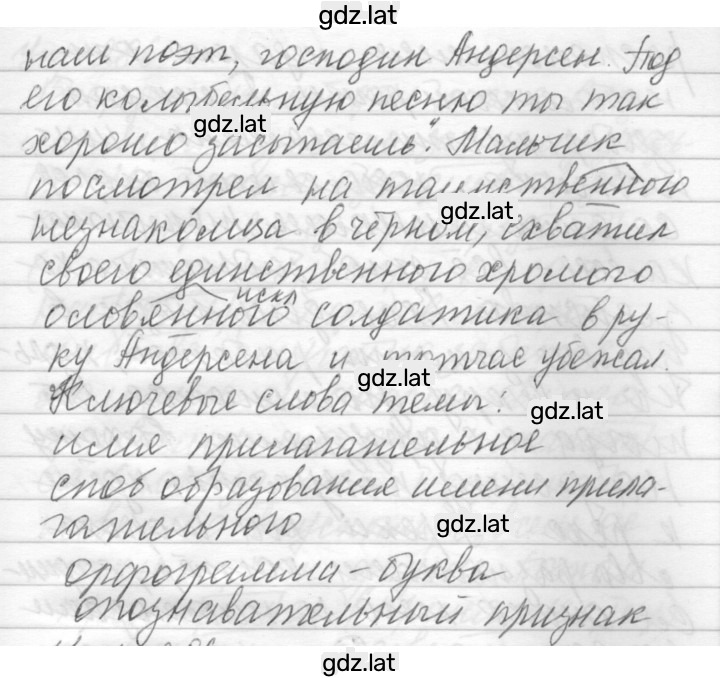 gdz.lat
наш поэт, господин Андерсен. Под
его колыбельную песню ты так
gdz.lat
хорошо засыпаешь". Мальчик
посмотрел на таинственного
gdz.lat
незнакомца в чёрном, схватил
своего единственного хромого
искл
оловянного солдатика в ру-
ку Андерсена и тотчас убежал.
gdz.lat
Ключевые слова темы:
gdz.lat
имя прилагательное
способ образования имени прила-
gdz.lat
гательного
орфограмма - буква
опознавательный признак
gdz.lat